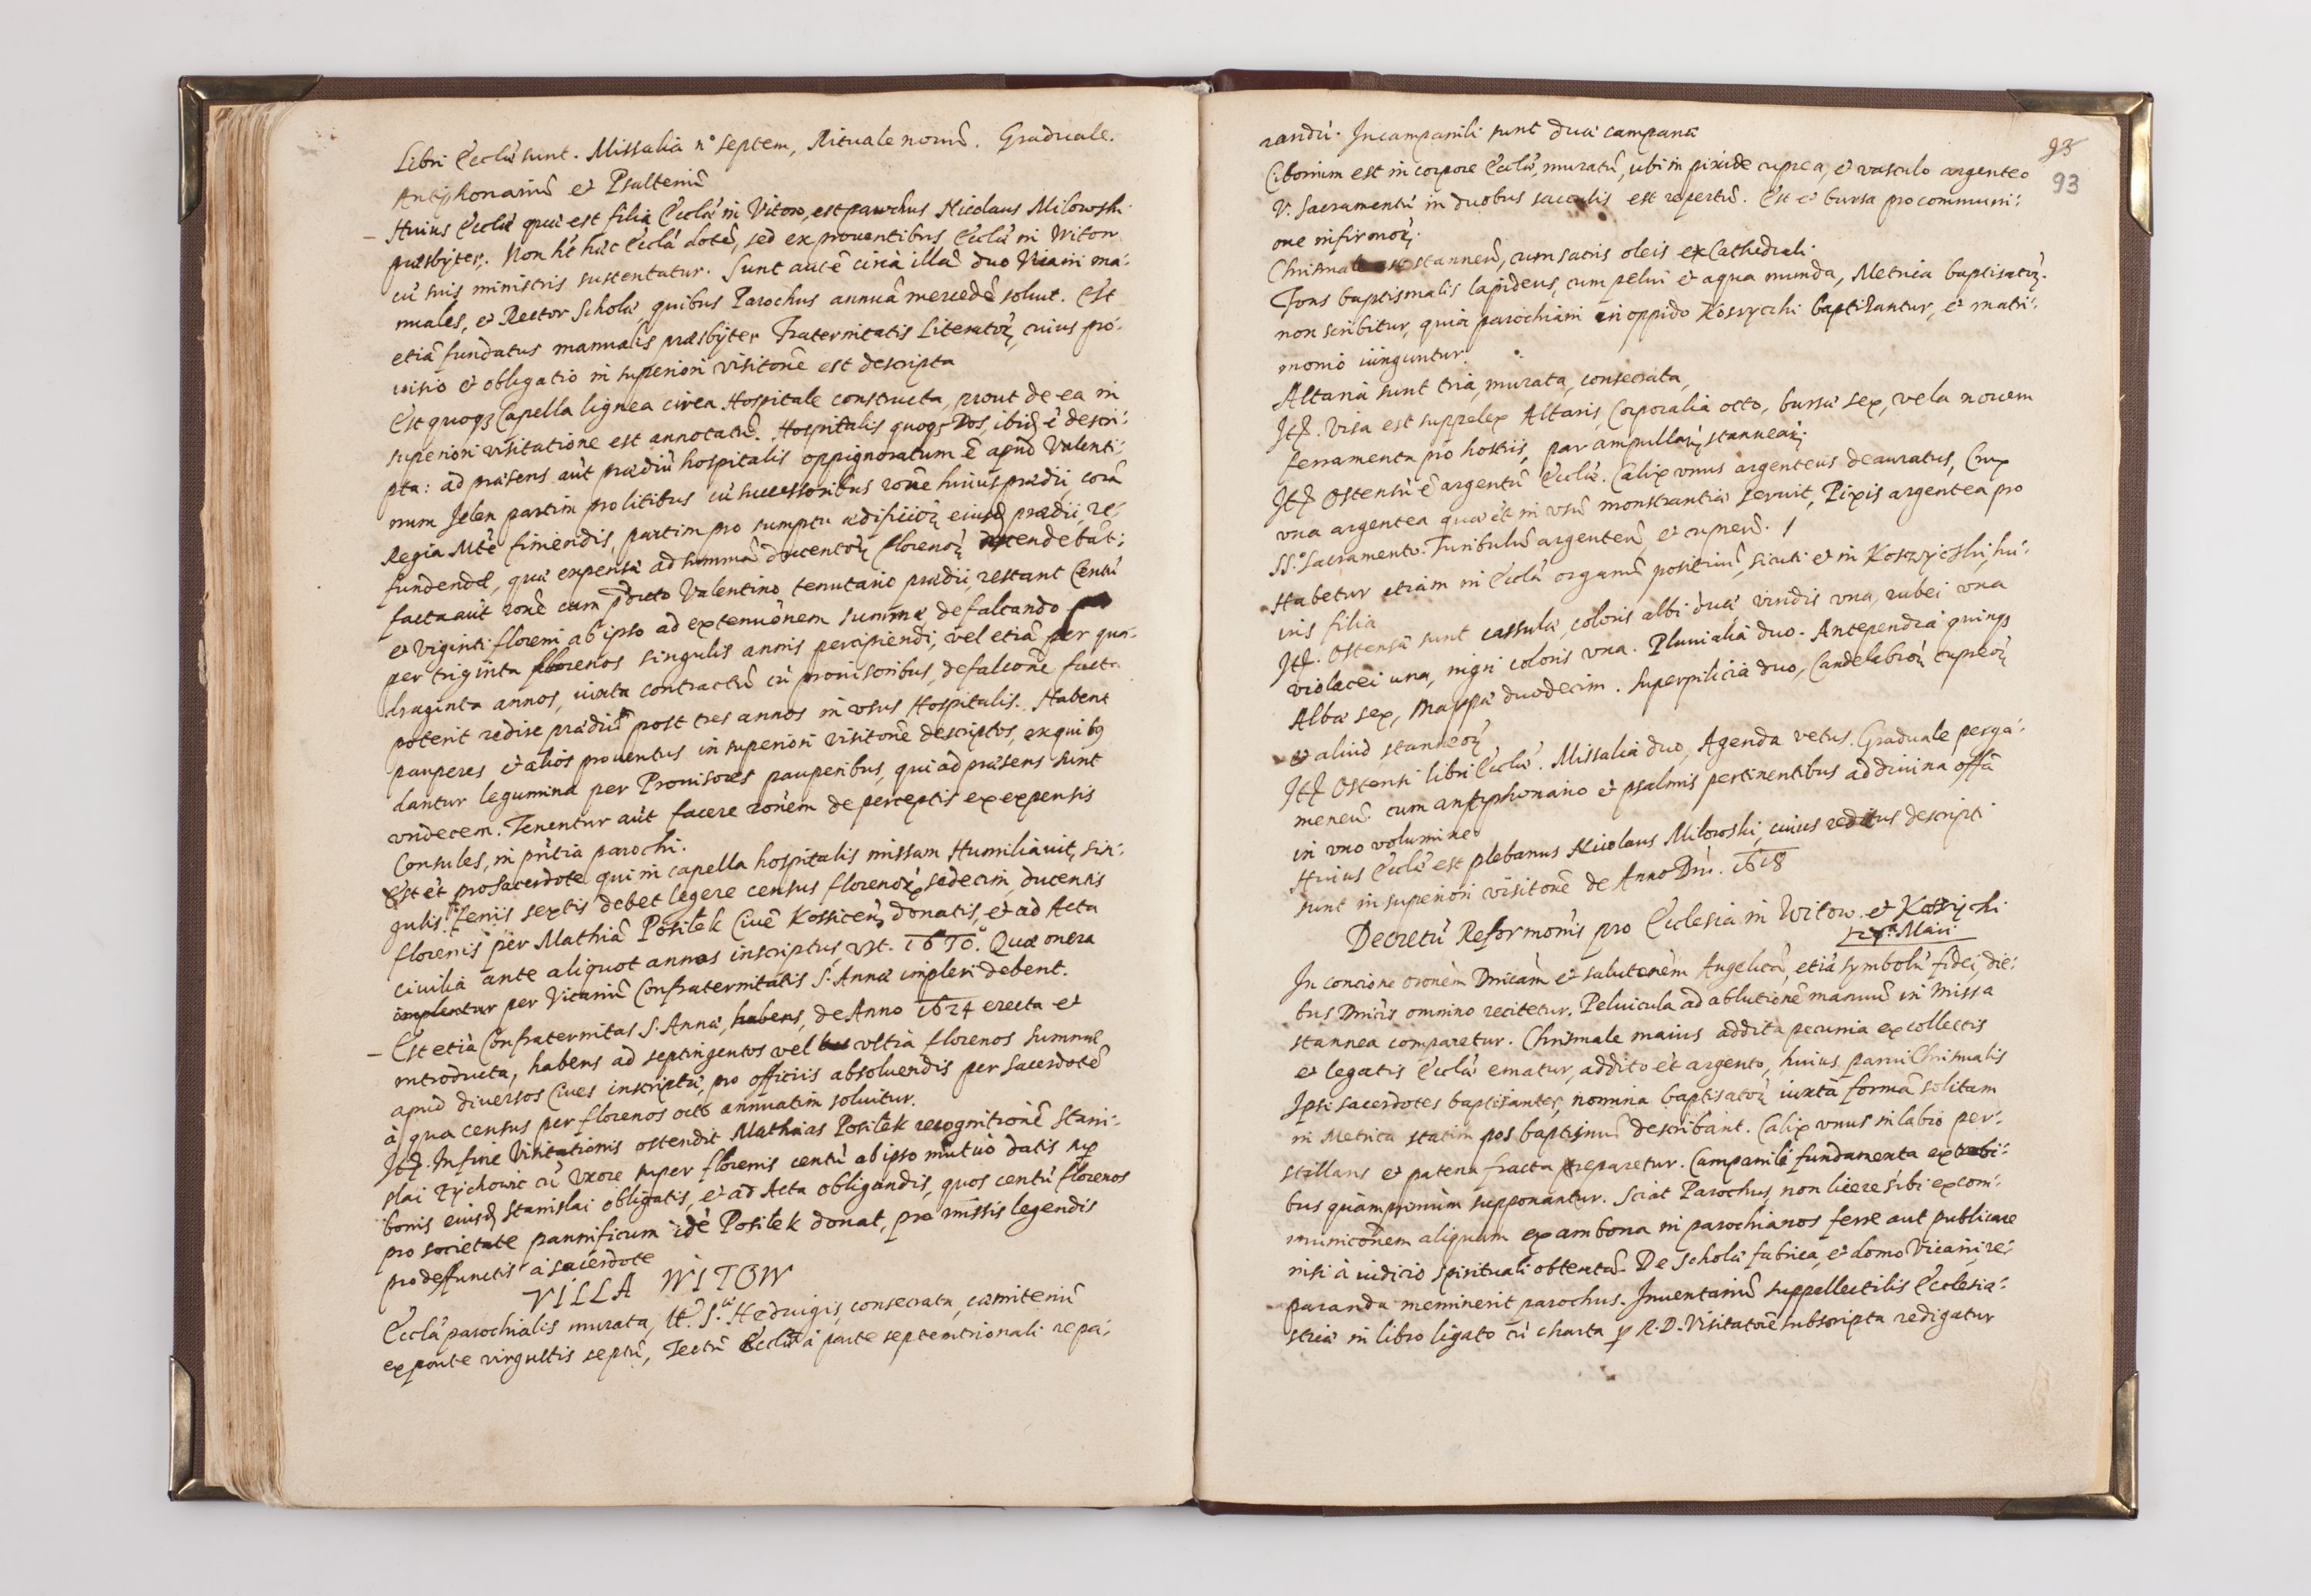 Libri Eccłæ sunt. Missalia nº septem, Rituale novũ. Graduale.
Antiphonariũ et Psalteriũ
– Huius Eccłæ quæ est filia Eccłæ in Vitow, est parochus Nicolaus Milowski
præsbyter. Non hẽ hæc Eccła dotẽ, sed ex proventibus Eccłæ in Witow
cũ suis ministris sustentatur. Sunt autẽ circa illã duo Vicarii ma-
nuales, et Rector Scholæ, quibus Parochus annuã mercedẽ solvit. Est
etiã fundatus manualis præsbyter Fraternitatis Literatoꝝ, cuius pro-
visio et obligatio in superiori visitõne est descripta
Est quoqꝫ Capella lignea circa Hospitale constructa, prout de ea in
superiori visitatione est annotatũ. Hospitalis quoqꝫ Dos, ibid ẽ descri-
pta: ad præsens aũt prædiũ hospitalis oppignoratum ẽ apud Valenti-
num Jelen partim pro litibus cũ successoribus rõne huius prædii, corã
Regia Mtẽ finiendis, partim pro sumptu ædificioꝝ eiusd prædii re-
fundendæ, quæ expensæ ad summã ducentoꝝ florenoꝝ extendebãt;
facta aũt rõne cum pdicto Valentino tenutario prædii, restant Centũ
et viginti floreni ab ipso ad extenuõnem summæ, defalcando
per triginta florenos singulis annis percipiendi, vel etiã per qua-
draginta annos, iuxta contractũ cũ provisoribus, defalcõne facta
poterit redire prædiũ post tres annos in usus Hospitalis. Habent
pauperes et alios proventus in superiori visitõne descriptos, ex quibꝯ
dantur legumina per Provisores pauperibus, qui ad præsens sunt
undecem. Tenentur aũt facere rõnem de perceptis ex expensis
Consules, in pñtia parochi.
Est et pro Sacerdote qui in capella hospitalis missam Humiliavit, sin-
gulis feriis sextis debet legere census florenoꝝ sedecim, ducentis
florenis per Mathiã Positek Civẽ Kossicen, donatis, et ad Acta
civilia ante aliquot annos inscriptus, vt. 1610. Quæ onera
implentur per Vicariũ Confraternitatis S. Annæ impleri debent.
– Est etiã Confraternitas S. Annæ, habens, de Anno 1624 erecta et
introducta, habens ad septingentos vel ultra florenos summæ
apud diversos Cives inscriptæ, pro officiis absolvendis per Sacerdotẽ
à qua census per florenos octo annuatim solvitur.
Itē. In fine Visitationis ostendit Mathias Positek recognitionẽ Stani-
slai Rychowic cũ Uxore super florenis centũ ab ipso mutuò datis sup
bonis eiusd Stanislai obligatis, et ad Acta obligandis, quos centũ florenos
pro societate pannificum idẽ Positek donat, pro missis legendis
pro deffunctis à sacerdote
VILLA WITOW
Eccła parochialis murata, tt. S. Heduigis, consecrata, cæmiteriũ
ex parte virgultis septũ, Tectũ Eccłæ à parte septemtrionali repa-
93
93
randũ. In campanili sunt duæ campanæ
Ciborium est in corpore Eccłæ, muratũ, ubi in pixide cuprea, et vasculo argenteo
V. Sacramentũ in duobus sacculis est repertũ. Est et bursa pro communi-
one infirmoꝝ.
Chrismale est stanneũ, cum sacris oleis ex Cathedrali
Fons baptismalis lapideus, cum pelvi et aqua munda, Metrica baptisatoꝝ.
non scribitur, quia parochiani in oppido Koszyczki baptizantur, et matri-
monio iunguntur.
Altaria sunt tria, murata, consecrata,
Itē. Visa est supplelex Altaris, Corporalia octo, bursæ sex, vela novem
ferramenta pro hostiis, par ampullaꝝ stanneaꝝ.
Itē Ostensũ ẽ argentũ Eccłæ. Calix unus argenteus deauratus, Crux
una argentea quæ et in usũ monstrantiæ servit, Pixis argentea pro
SS. Sacramento. Turibulũ argenteũ, et cupreũ.
Habetur etiam in Eccła organũ positivũ, sicuti et in Koszyczki, hu-
ius filia
Itē. Ostensæ sunt cassulæ, coloris albi duæ viridis una, rubei una
violacei una, nigri coloris una. Pluvialia duo. Antependia quinqꝫ
Albæ sex, Mappæ duodecim. Superpilicia duo, Candelabroꝝ cupreoꝝ
et aliud stanneoꝝ
Itē Ostensi libri Eccłæ. Missalia duo, Agenda vetus. Graduale perga-
meneũ cum antiphonario et psalmis pertinentibus ad divina offã
in uno volumine
Huius Eccłæ est plebanus Nicolaus Milowski, cuius reditus descripti
sunt in superiori visitõne de Anno Dni. 1618
Decretũ Reformõnis pro Ecclesia in Witow et Koszyczki
Maii
In concione orõnẽm Dñicãm et salutõnẽm Angelicã, etiã symbolũ fidei, die-
bus Dñicis omnino recitetur. Pelvicula ad ablutionẽ manuũ in Missa
stannea comparetur. Chrismale maius addita pecunia ex collectis
et legatis Eccłæ ematur, addito et argento, huius parvi Chrismalis
Ipsi sacerdotes baptisantes, nomina baptisatoꝝ iuxta formã solitam
in Metrica statim pos baptismũ describant. Calix unus in labio per-
stillans et patena fracta reparetur. Campanili fundamenta ex trabi-
bus quàmprimùm supponantur. Sciat Parochus, non licere sibi excom-
municõnem aliquam ex ambona in parochianos ferre aut publicare
nisi à iudicio spirituali obtentã. De Scholæ fabrica, et domo Vicarii re-
paranda meminerit parochus. Inventariũ suppellectilis Ecclesia-
sticæ in libro ligato cũ charta p R. D. Visitatorẽ subscripta redigatur